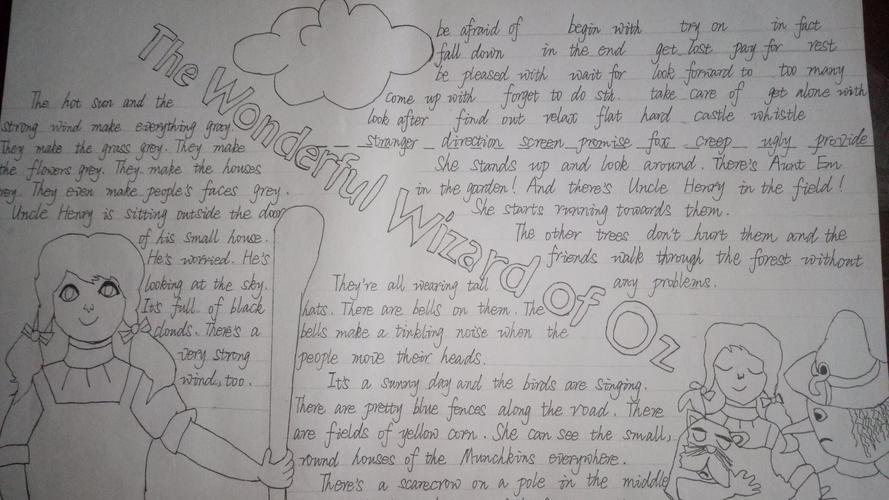 The Wonderful Wizard of Oz
be afraid of begin with try on in fact
fall down in the end get lost pay for rest
be pleased with wait for look forward to too many
come up with forget to do sth. take care of get alone with
look after find out relax flat hard castle whistle
stranger direction screen promise fox creep ugly provide
The hot sun and the
strong wind make everything gray.
They make the grass grey. They make
the flowers grey. They make the houses
rey. They even make people's faces grey.
Uncle Henry is sitting outside the door
of his small house.
He's worried. He's
looking at the sky.
It's full of black
clouds. There's a
very strong
wind, too.
She stands up and look around. There's Aunt Em
in the garden! And there's Uncle Henry in the field!
She starts running towards them.
The other trees don't hurt them and the
friends walk through the forest without
any problems.
They're all wearing tall
hats. There are bells on them. The
bells make a tinkling noise when the
people move their heads.
It's a sunny day and the birds are singing.
There are pretty blue fences along the road. There
are fields of yellow corn. She can see the small,
round houses of the Munchkins everywhere.
There's a scarecrow on a pole in the middle